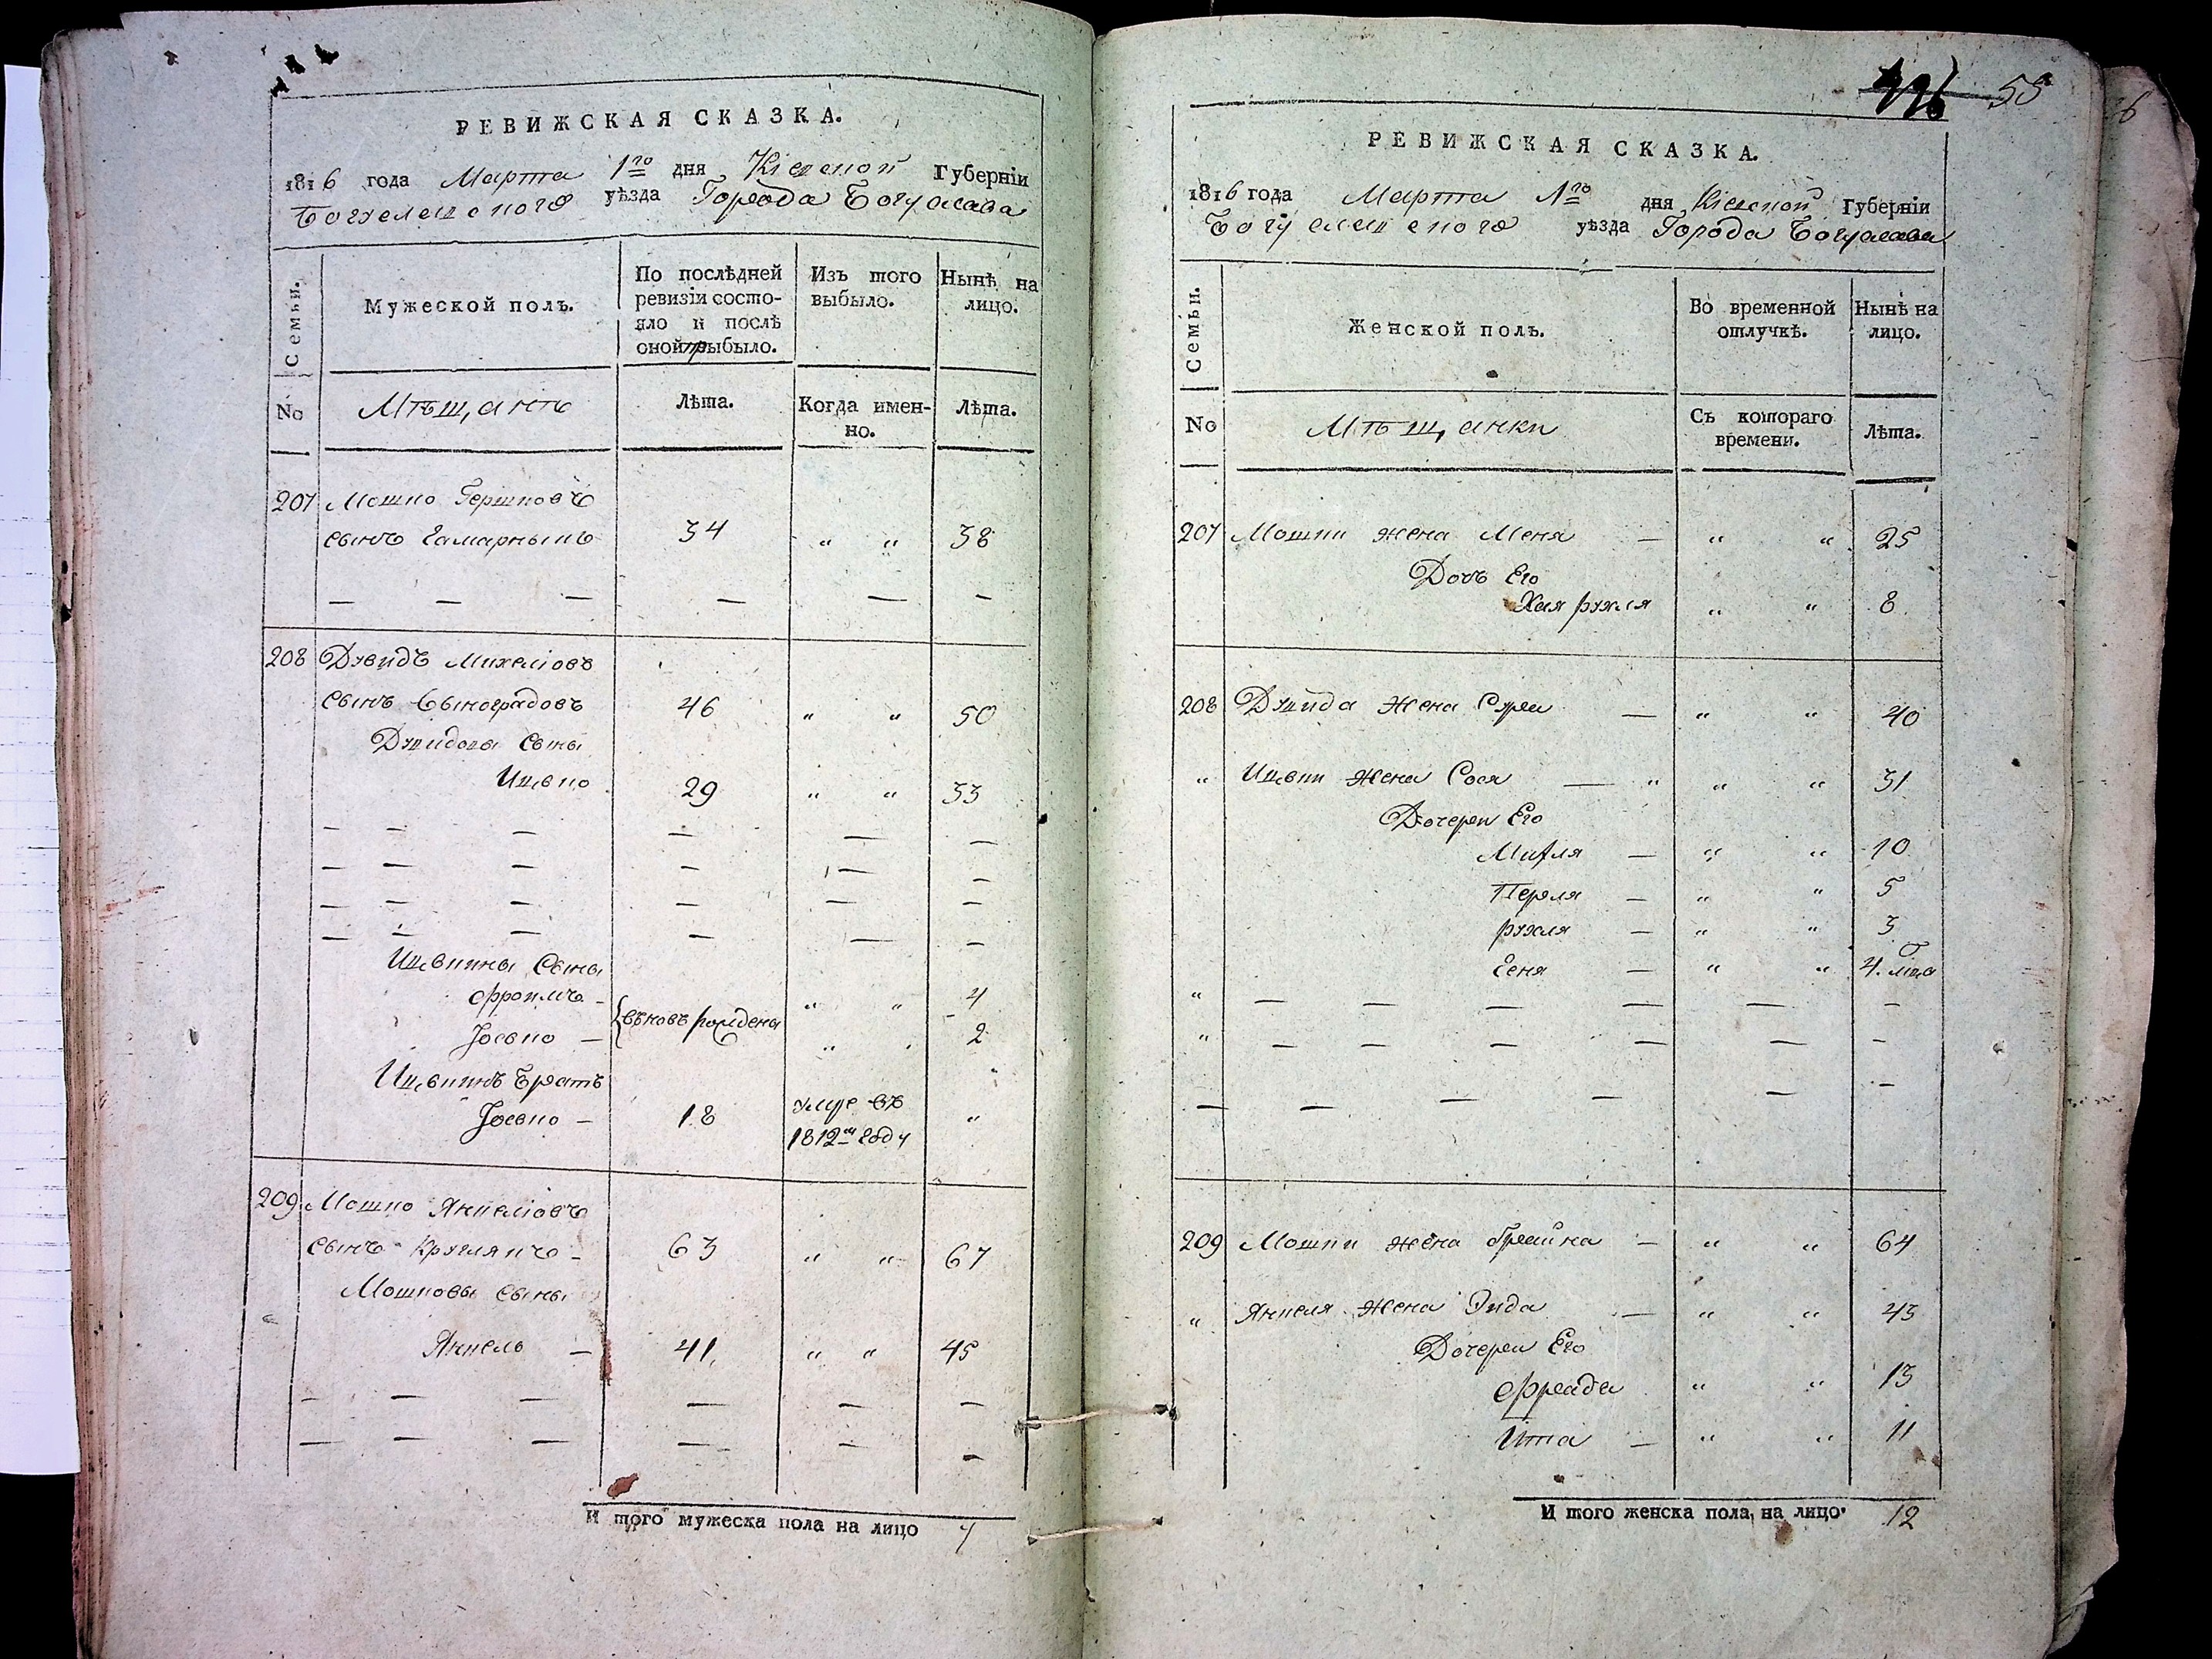 РЕВИЖСКАЯ СКАЗКА.
1816 года Марта 1го дня Кіевской Губерніи
Богуславского уѣзда Города Богуслава
Семьи.
Мужеской полъ.
По послѣдней ревизіи состояло и послѣ оной прибыло.
Изъ того выбыло.
Нынѣ на лицо.
No
Мѣщанъ
Лѣта.
Когда именно.
Лѣта.
207 Мошко Гершковъ
сынъ 34 " " 38
208 Дувидъ Михеліовъ
сынъ 46 " " 50
Дувидовы сыны
Ицько 29 " " 33
Ицькины сыны
Фроимъ - " " 4
вновь рождены
Іосько - " " 2
Ицькинъ братъ
Іосько - 18 умре въ 1812м году "
209 Мошко Янкеліовъ
сынъ - 63 " " 67
Мошковы сыны
Янкель - 41 " " 45
И того мужеска пола на лицо 7
996 55
РЕВИЖСКАЯ СКАЗКА.
1816 года Марта 1го дня Кіевской Губерніи
Богуславского уѣзда Города Богуслава
Семьи.
Женской полъ.
Во временной отлучкѣ.
Нынѣ на лицо.
No
Мѣщанки
Съ котораго времени.
Лѣта.
207 Мошки жена Меня - " " 25
Дочь Его
Хая рухля " " 8
208 Дувида жена Сура - " " 40
" Ицьки жена Сося - " " " 31
Дочери Его
- " " 10
Перля - " " 5
рухля - " " 3
Геня - " " 4
209 Мошки жена - " " 64
" Янкеля жена - " " 43
Дочери Его
Фрада " " 13
Ита - " " 11
И того женска пола на лицо 12